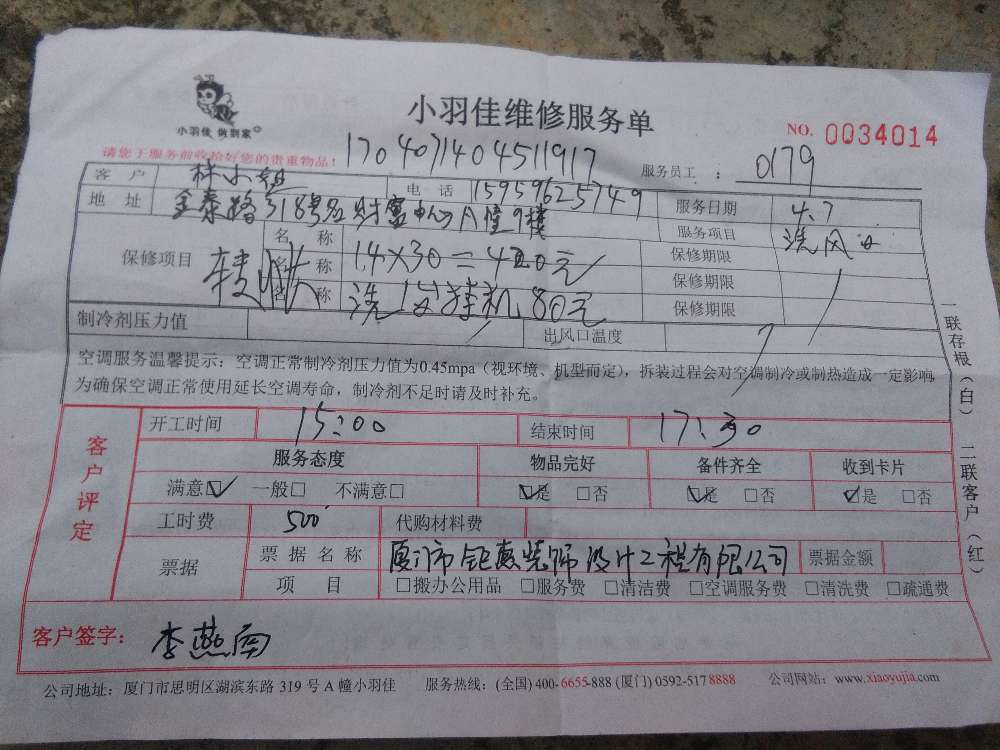 小羽佳维修服务单
小羽佳 做到家
NO. 0034014
请您于服务前收拾好您的贵重物品！
1704071404511917
服务员工： 0179
客户 林小姐 电话 15959625749 服务日期 4.7
地址 金泰路318号名财富中心A幢9楼 服务项目 洗风口
保修项目 名称 保修期限
名称 14×30=420元 保修期限
名称 洗1台挂机80元 保修期限
制冷剂压力值 出风口温度
空调服务温馨提示：空调正常制冷剂压力值为0.45mpa（视环境、机型而定），拆装过程会对空调制冷或制热造成一定影响
为确保空调正常使用延长空调寿命，制冷剂不足时请及时补充。
客户评定
开工时间 15:00 结束时间 17:30
服务态度 物品完好 备件齐全 收到卡片
满意☑ 一般□ 不满意□ ☑是 □否 ☑是 □否 ☑是 □否
工时费 500 代购材料费
票据 票据名称 厦门市钜惠装饰设计工程有限公司 票据金额
项目 □搬办公用品 □服务费 □清洁费 □空调服务费 □清洗费 □疏通费
客户签字： 李燕南
公司地址：厦门市思明区湖滨东路 319 号 A 幢小羽佳 服务热线：(全国) 400-6655-888 (厦门) 0592-517 8888 公司网站：www.xiaoyujia.com
一联存根（白） 二联客户（红）